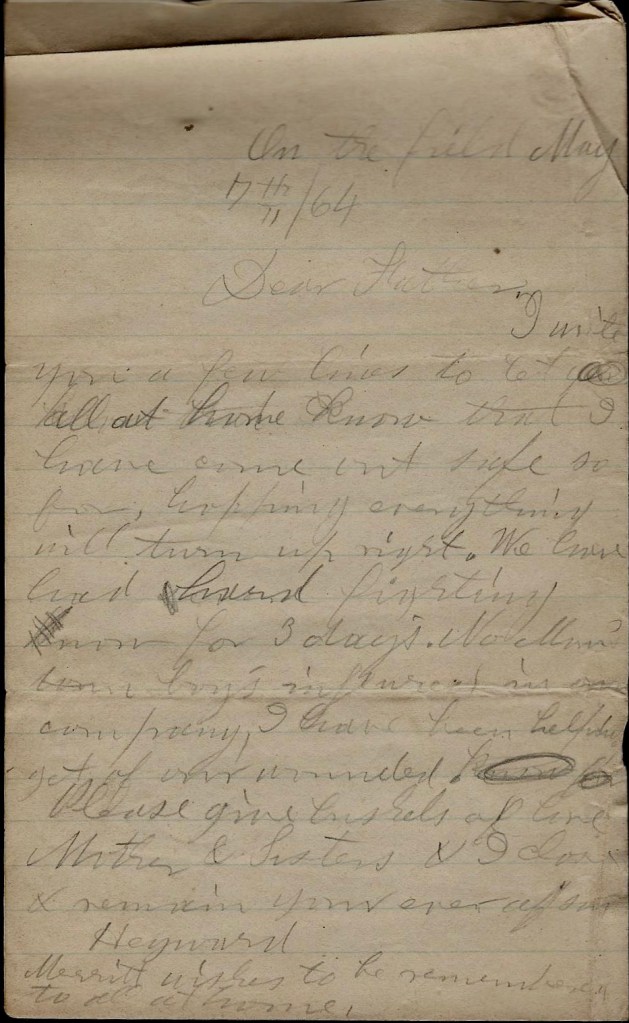 On the field May
7th/64
Dear Father
I write
you a few lines to let
all at home know that I
have come out safe so
far, hopping everything
will turn up right. We have
had hard fighting
now for 3 days. No
town boys in
company, I have been helping
get of our wounded
Please give bushels of love
Mother & Sisters & I close
& remain your ever
Heyward
Merritt wishes to be remembered
to all at home.